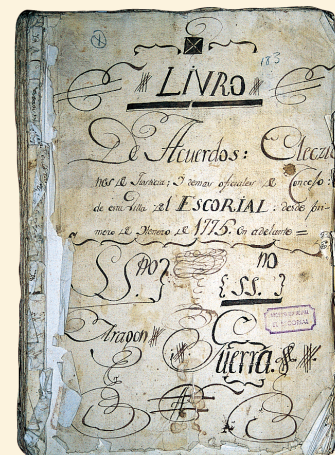 183
LIVRO
De Acuerdos: Eleczio
nes de Justicia; I demas oficiales de Concejo:
de esta Villa del ESCORIAL: desde pri-
mero de Henero de 1775. en adelante =
SS.nos no
{SS.}
Aragon Guerra.
EL ESCORIAL